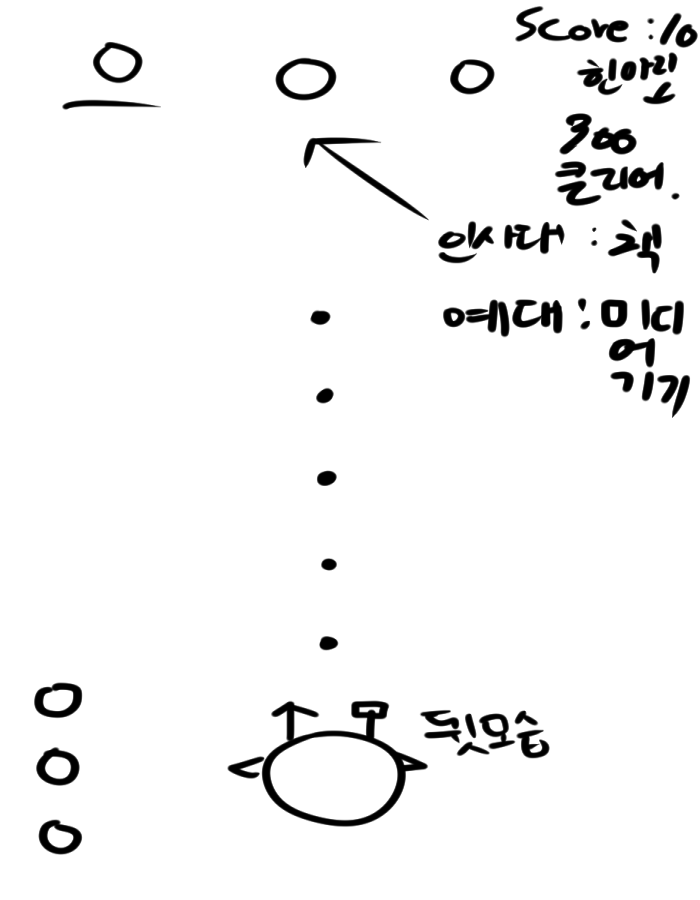 Score : 10
힌마리
300
클리어.
인사대 : 책
예대 : 미디
어
기기
뒷모습